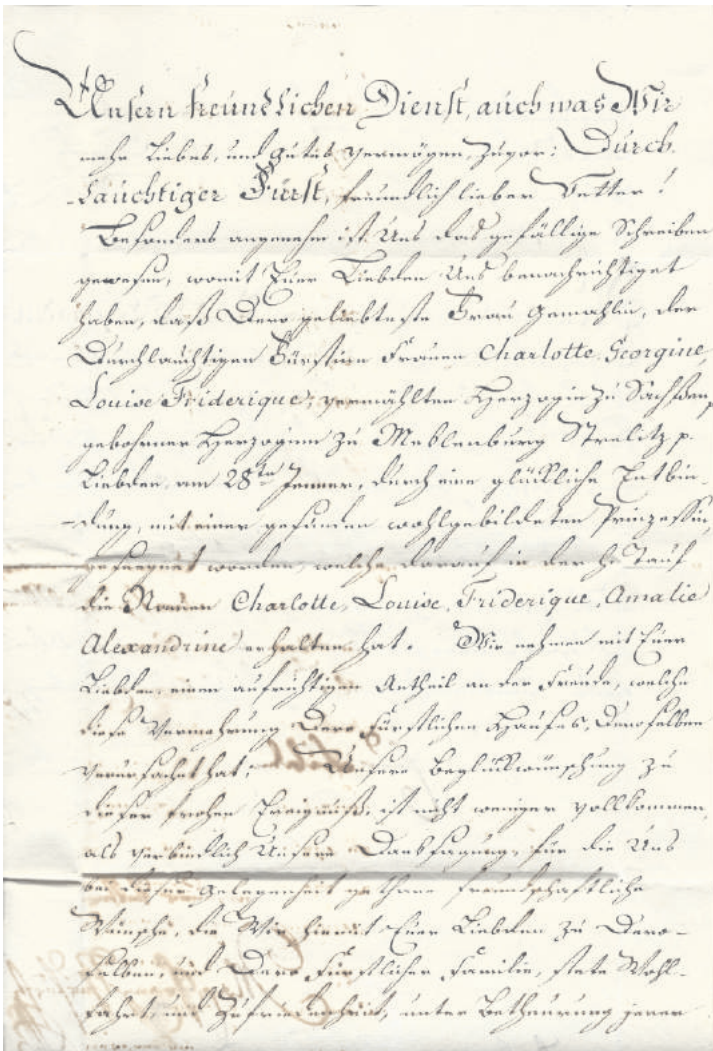 Unsern freundlichen Dienst, auch was Wir
mehr Liebes, und Gutes vermögen, zuvor: Durch-
-lauchtiger Fürst, freundlich lieber Vetter!
Besonders angenehm ist Uns das gefällige Schreiben
gewesen, womit Euer Liebden Uns benachrichtiget
haben, daß Dero geliebteste Frau Gemahlin, der
Durchlauchtigen Fürstinn Frauen Charlotte Georgine
Louise Friderique, vermählten Herzogin zu Sachßen,
gebohrner Herzoginn zu Meklenburg Strelitz p.
Liebden, am 28ten Jenner, durch eine glükliche Entbin-
-dung, mit einer gesunden wohlgebildeten Prinzessin,
geseegnet worden, welche darauf in der h. Tauf
die Namen Charlotte, Louise, Friderique, Amalie
Alexandrine erhalten hat. Wir nehmen mit Euer
Liebden, einen aufrichtigen Antheil an der Freude, welche
diese Vermehrung Dero Fürstlichen Hauses, Deroselben
verursachet hat; Unsere Beglückwünschung zu
dieser frohen Ereigniß, ist nicht weniger vollkommen,
als verbindlich Unsere Danksagung, für die Uns
bei dieser Gelegenheit gethane freundschaftliche
Wünsche, die Wir hiemit Euer Liebden zu Dero-
selben, und Dero Fürstlicher Familie, stete Wohl-
fahrt, und Zufriedenheit, unter Betheurung jener